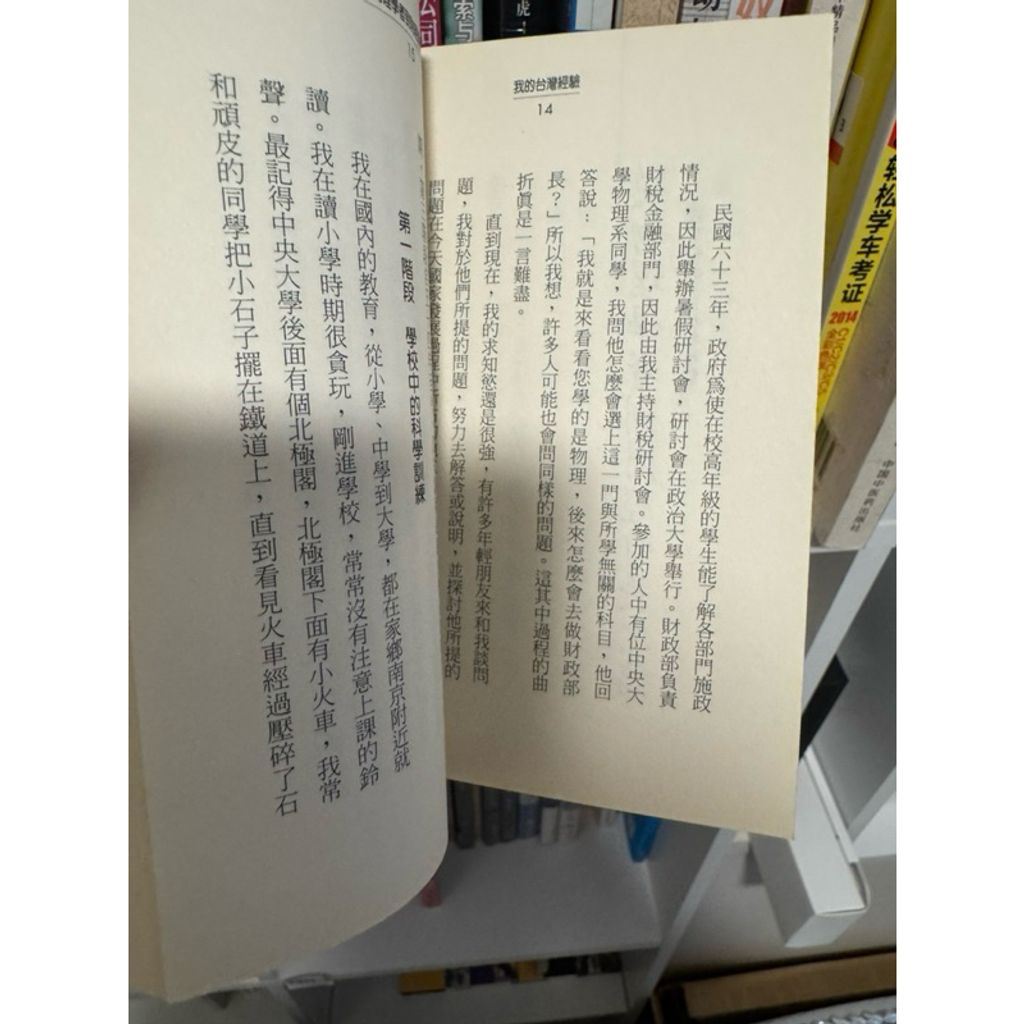 我的台灣經驗
14
民國六十三年，政府爲使在校高年級的學生能了解各部門施政
情況，因此舉辦暑假研討會，研討會在政治大學舉行。財政部負責
財稅金融部門，因此由我主持財稅研討會。參加的人中有位中央大
學物理系同學，我問他怎麼會選上這一門與所學無關的科目，他回
答說：「我就是來看看您學的是物理，後來怎麼會去做財政部
長？」所以我想，許多人可能也會問同樣的問題。這其中過程的曲
折眞是一言難盡。
直到現在，我的求知慾還是很強，有許多年輕朋友來和我談問
題，我對於他們所提的問題，努力去解答或說明，並探討他所提的
問題在今天國家發展過程中所
15
第一階段　學校中的科學訓練
我在國內的教育，從小學、中學到大學，都在家鄉南京附近就
讀。我在讀小學時期很貪玩，剛進學校，常常沒有注意上課的鈴
聲。最記得中央大學後面有個北極閣，北極閣下面有小火車，我常
和頑皮的同學把小石子擺在鐵道上，直到看見火車經過壓碎了石
轻松学车考证
2014
中国中医药出版社
虎
索与
公司